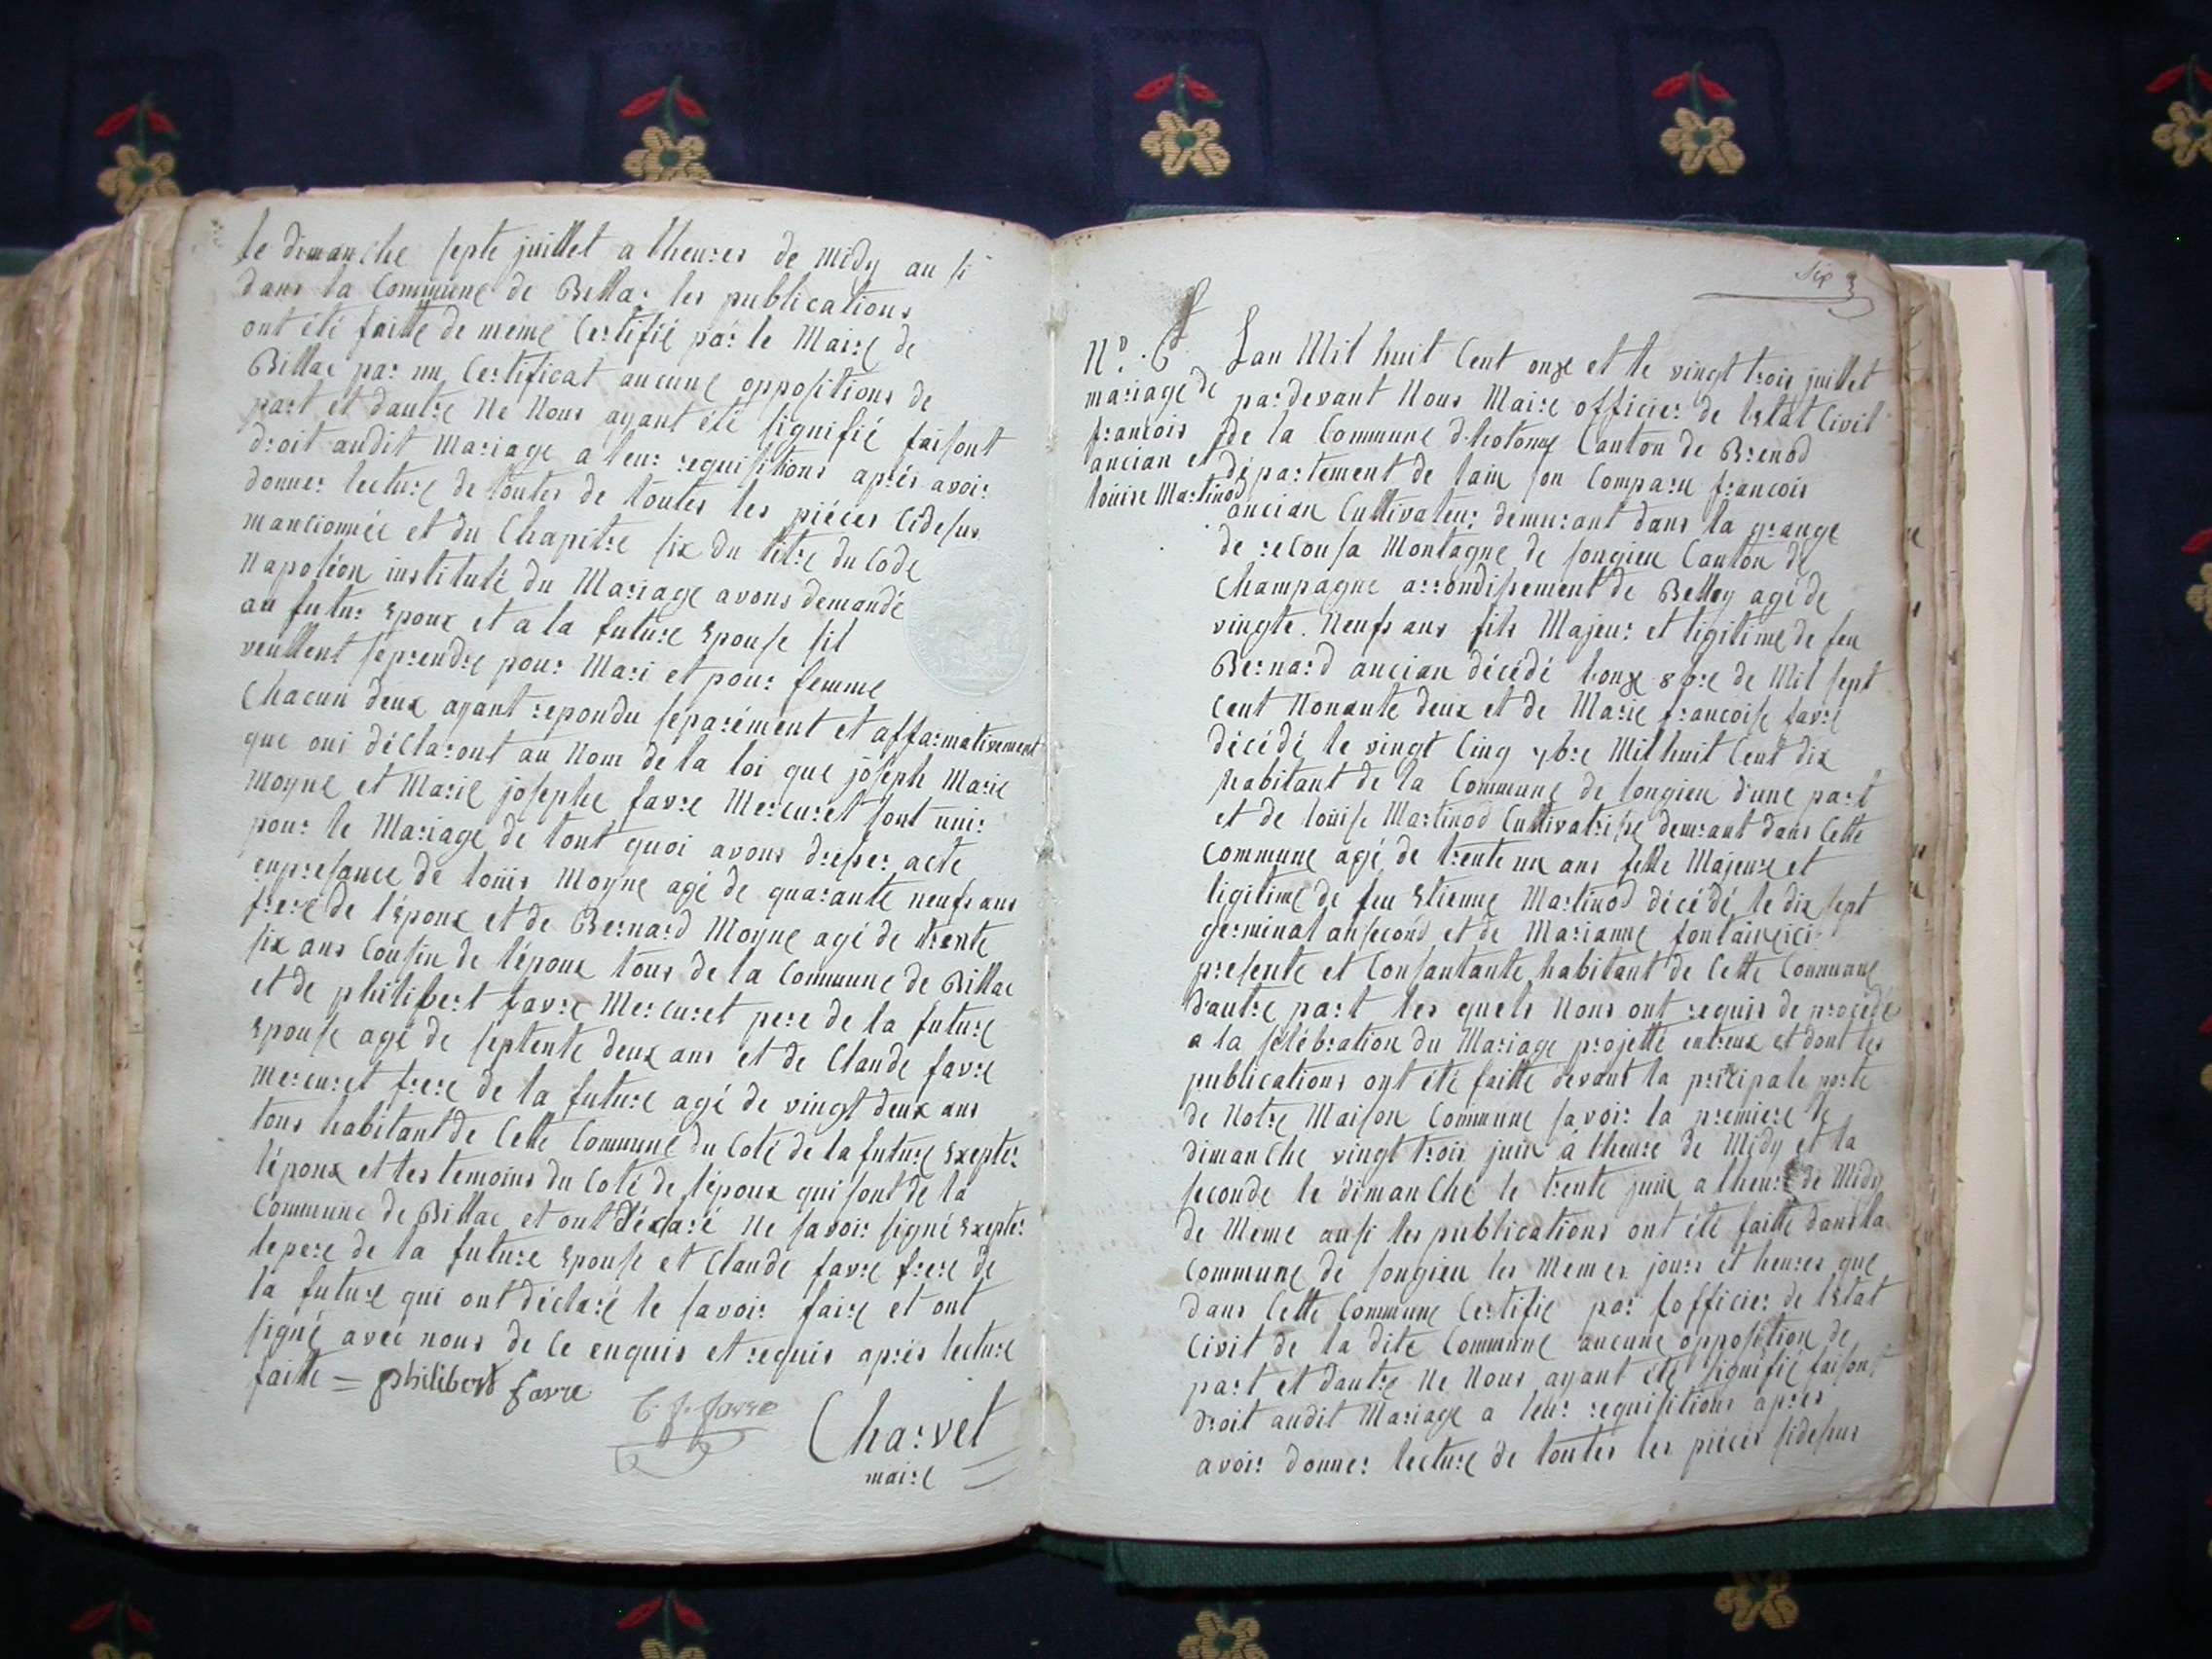 le dimanche septe juillet a lheures de midy ausi
dans la Commune de Billac les publications
ont été faitte de meme Certifié par le Maire de
Billac par un Certificat aucune oppositions de
part et dautre Ne Nous ayant été signifié faisont
droit audit Mariage a leur requisitions aprés avoir
donner lecture de toutes de toutes les piéces Cidesus
mancionnée et du Chapitre six du titre du Code
Napoléon institulé du Mariage avons demandé
au futur Epoux et a la future Epouse sil
veullent seprendre pour Mari et pour femme
Chacun deux ayant repondu séparément et affarmativement
que oui déclaront au Nom de la loi que joseph Marie
Moyne et Marie josephe favre Mercuret sont unir
pour le Mariage de tout quoi avons drésser acte
enpresance de louis Moyne agé de quarante neufs ans
frere de l'Epoux et de Bernard Moyne agé de trente
six ans Cousin de lépoux tous de la Commune de Billac
et de philibert favre Mercuret pere de la future
Epouse agé de septente deux ans et de Claude favre
Mercuret frere de la future agé de vingt deux ans
tous habitant de Cette Commune du Coté de la future Exepter
lépoux et les temoins du Coté de lépoux qui sont de la
Commune de Billac et ont décaré Ne savoir signé Exepter
le pere de la future Epouse et Claude favre frere de
la future qui ont déclaré le savoir faire et ont
signé avec nous de Ce enquis et requis aprés lecture
faitte = philibert favre
C. j. favre
Charvet
maire
Six
N.º 6
mariage de
francois
ancian et
louise Martinod
Lan Mil huit Cent onze et le vingt trois juillet
pardevant Nous Maire officier de lEtat Civil
de la Commune d.hotonne Canton de Brenod
département de lain son Comparu francois
ancian Cultivateur demurant dans la grange
de recousa Montagne de songieu Canton de
Champagne arrondissement de Belley agé de
vingte. Neufs ans fils Majeur et ligitime de feu
Bernard ancian décédé lonze 8bre de Mil sept
Cent Nonante deux et de Marie francoise favre
décédé le vingt Cinq 7bre Mil huit Cent dix
habitant de la Commune de songieu d'une part
et de louise Martinod Cultivatrise demrant dans Cette
Commune agé de trente un ans fille Majeure et
ligitime de feu Etienne Martinod décédé le dix sept
germinal an second et de Marianne fontaine ici
presente et Consantante habitant de Cette Commune
d'autre part les quels Nous ont requis de procédé
a la sélébration du Mariage projetté entreux et dont les
publications ont été faitte devant la pricipale porte
de Notre Maison Commune savoir la premiere le
dimanche vingt trois juin à lheure de Midy et la
seconde le dimanche le trente juin a lheure de Midy
de Meme ausi les publications ont été faitte dans la
Commune de songieu les Memes jours et heures que
dans Cette Commune Certifié par lofficier de lEtat
Civil de la dite Commune aucune opposition de
part et dautre Ne Nous ayant été signifié faisont
droit audit Mariage a leur requisitions aprés
avoir donner lecture de toutes les piéces sidesus